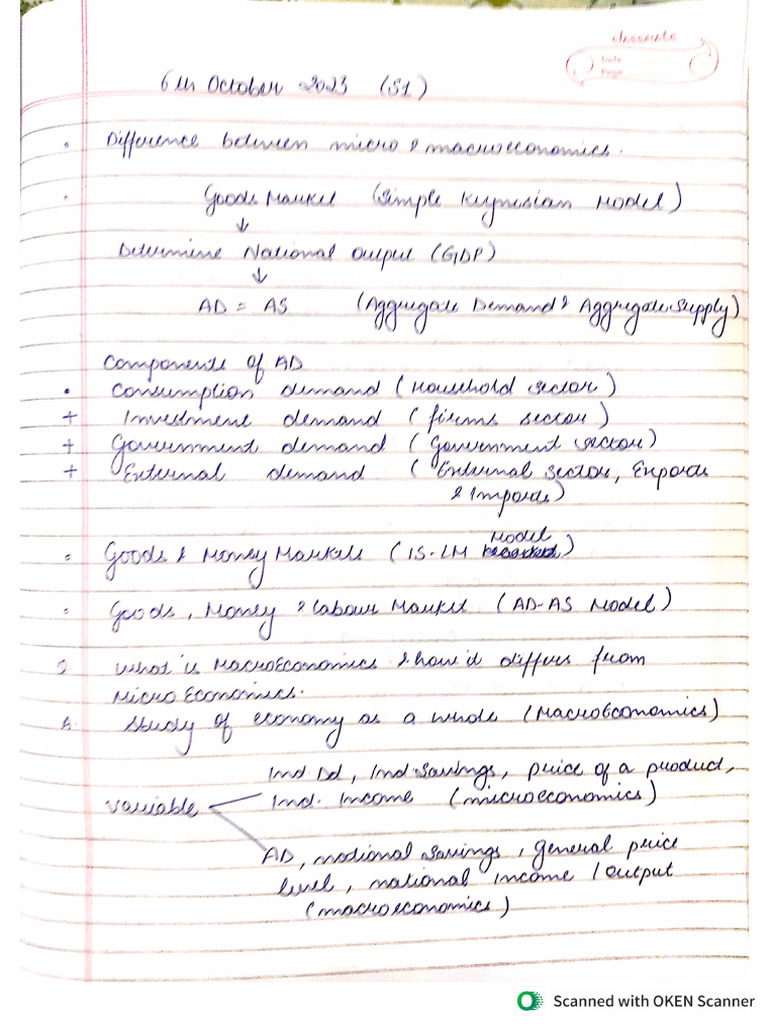 classmate
Date
Page
6th October 2023 (S1)
• Difference between micro & macroeconomics.
• Goods Market (Simple Keynesian Model)
↓
Determine National output (GDP)
↓
AD = AS (Aggregate Demand & Aggregate Supply)
Components of AD
• Consumption demand (Household sector)
+ Investment demand (firms sector)
+ Government demand (Government sector)
+ External demand (External sector, Exports
& Imports)
Model
• Goods & Money Markets (IS-LM )
• Goods, Money & Labour Market (AD-AS Model)
Q What is MacroEconomics & how it differs from
Micro Economics.
A. Study of economy as a whole (MacroEconomics)
Ind Dd, Ind Savings, price of a product,
Variable Ind. Income (microeconomics)
AD, national savings, general price
level, national income / output
(macroeconomics)
Scanned with OKEN Scanner